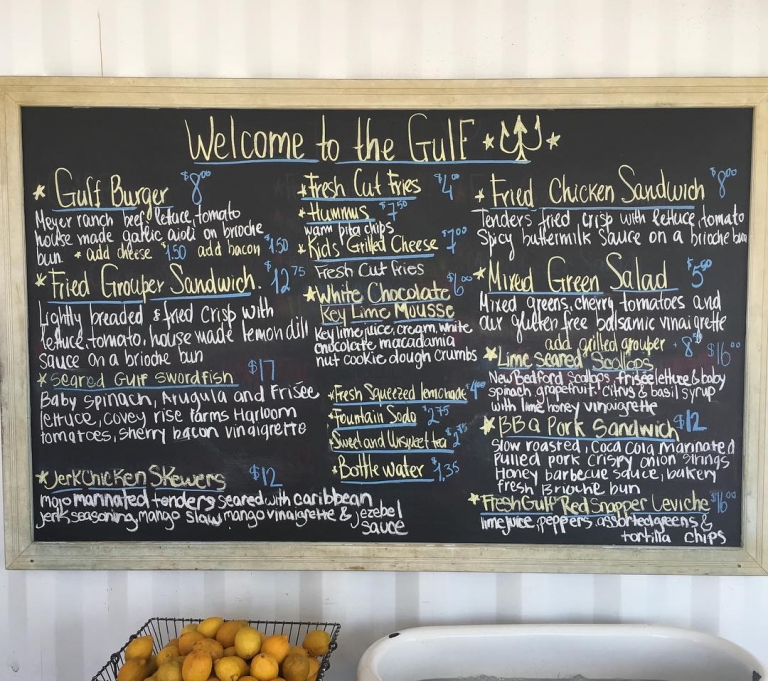 Welcome to the Gulf
* Gulf Burger $8.00
Meyer ranch beef, lettuce, tomato
house made garlic aioli on brioche
bun. * add cheese $1.50 add bacon $1.50
* Fried Grouper Sandwich. $12.75
Lightly breaded & fried crisp with
lettuce, tomato, house made lemon dill
sauce on a brioche bun
* Seared Gulf Swordfish $17
Baby spinach, Arugula and Frisée
lettuce, covey rise farms Harloom
tomatoes, sherry bacon vinaigrette
* Jerk Chicken Skewers $12
mojo marinated tenders seared with caribbean
jerk seasoning, mango slaw mango vinaigrette & jezebel
sauce
* Fresh Cut Fries $4.00
* Hummus $7.50
warm pita chips
* Kid's Grilled Cheese $7.00
Fresh Cut fries
* White Chocolate $6.00
Key Lime Mousse
Key lime juice, cream, white
chocolate, macadamia
nut cookie dough crumbs
* Fresh Squeezed lemonade $4.00
* Fountain Soda $2.75
Sweet and Unsweet tea $2.75
* Bottle water $1.35
* Fried Chicken Sandwich $8.00
Tenders fried crisp with lettuce, tomato
Spicy buttermilk sauce on a brioche bun
* Mixed Green Salad $5.00
Mixed greens, cherry tomatoes and
our gluten free balsamic vinaigrette
add grilled grouper $8
* Lime Seared Scallops $16.00
New Bedford Scallops, frisée lettuce & baby
spinach, grapefruit, citrus & basil syrup
with lime honey vinaigrette
* BBQ Pork Sandwich $12
Slow roasted, Coca Cola marinated
Pulled pork crispy onion strings
Honey barbecue sauce, bakery
fresh Brioche bun
* Fresh Gulf Red Snapper Ceviche $16.00
lime juice, peppers, assorted greens &
tortilla chips